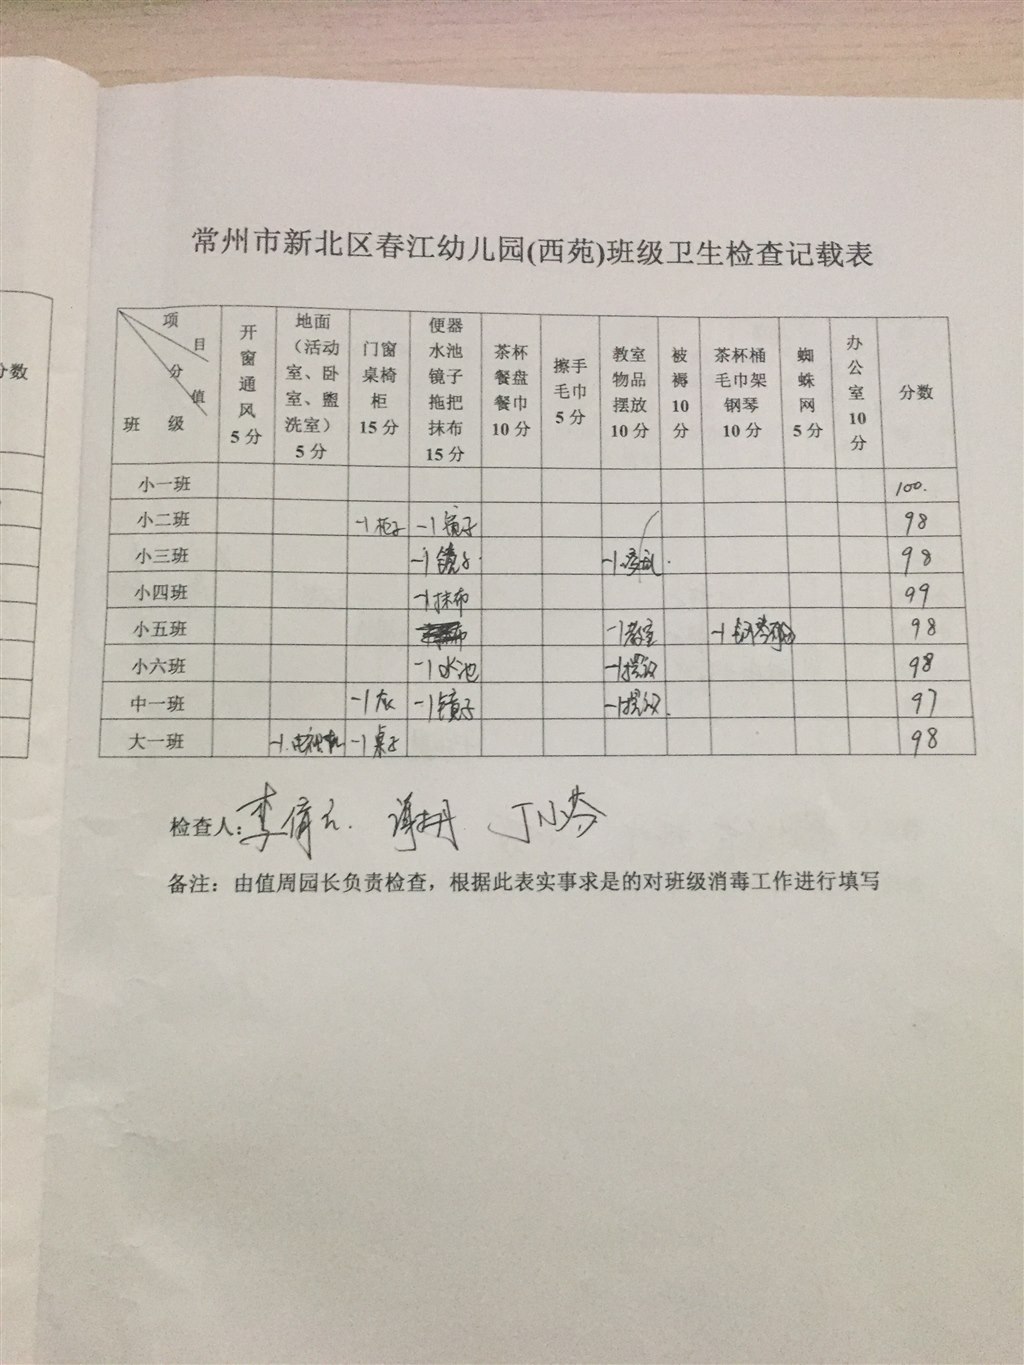 常州市新北区春江幼儿园(西苑)班级卫生检查记载表
分数
项
目
分
值
班 级
开
窗
通
风
5分
地面
(活动
室、卧
室、盥
洗室)
5分
门窗
桌椅
柜
15分
便器
水池
镜子
拖把
抹布
15分
茶杯
餐盘
餐巾
10分
擦手
毛巾
5分
教室
物品
摆放
10分
被
褥
10
分
茶杯桶
毛巾架
钢琴
10分
蜘
蛛
网
5分
办
公
室
10
分
分数
小一班 100.
小二班 -1柜子 -1镜子 98
小三班 -1镜子 -1 98
小四班 -1抹布 99
小五班 -1教室 -1钢琴 98
小六班 -1水池 -1摆放 98
中一班 -1 -1镜子 -1摆放 97
大一班 -1.电视机 -1桌子 98
检查人:
备注:由值周园长负责检查,根据此表实事求是的对班级消毒工作进行填写